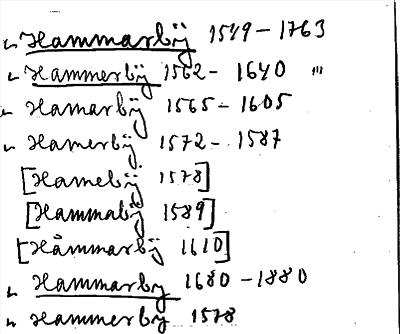 " Hammarbÿ 1549-1763
" Hammerbÿ 1562- 1640 "'
" Hamarbÿ 1565- 1605
" Hamerbÿ 1572- 1587
[Hamebÿ 1578]
[Hammabÿ 1589]
[Håmmarbÿ 1610]
" Hammarby 1680-1880
" Hammerby 1578